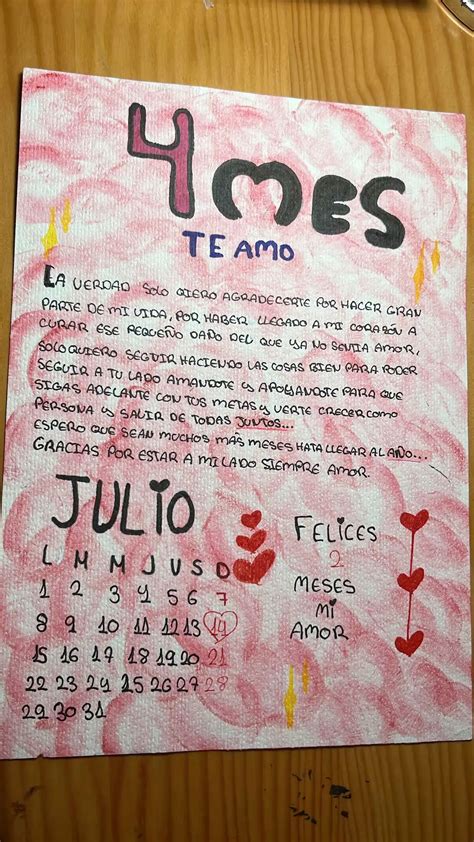 4 MES
TE AMO
LA VERDAD SOLO QIERO AGRADECERTE POR HACER GRAN
PARTE DE MI VIDA, POR HABER LLEGADO A MI CORAZÓN A
CURAR ESE PEQUEÑO DAÑO DEL QUE YA NO SENTIA AMOR,
SOLO QUIERO SEGUIR HACIENDO LAS COSAS BIEN PARA PODER
SEGUIR A TU LADO AMANDOTE Y APOYANDOTE PARA QUE
SIGAS ADELANTE CON TUS METAS Y VERTE CRECER COMO
PERSONA Y SALIR DE TODAS JUNTOS...
ESPERO QUE SEAN MUCHOS MÁS MESES HATA LLEGAR AL AÑO...
GRACIAS POR ESTAR A MI LADO SIEMPRE AMOR.
JULIO
L M M J V S D
1 2 3 4 5 6 7
8 9 10 11 12 13 14
15 16 17 18 19 20 21
22 23 24 25 26 27 28
29 30 31
FELICES
2
MESES
MI
AMOR